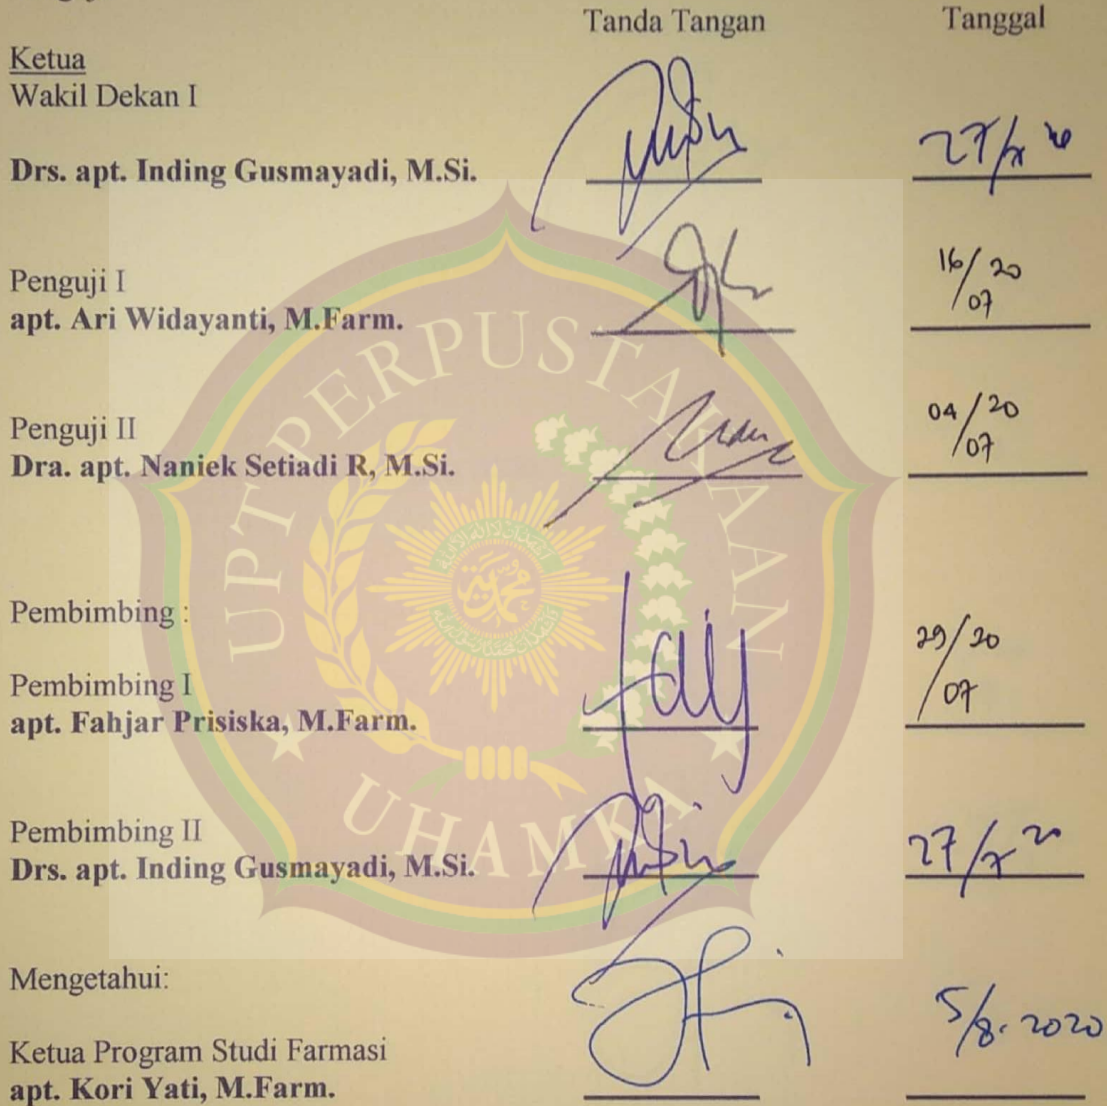 Tanda Tangan Tanggal
Ketua
Wakil Dekan I
Drs. apt. Inding Gusmayadi, M.Si. 27/7 20
Penguji I
apt. Ari Widayanti, M.Farm. 16/07 20
Penguji II
Dra. apt. Naniek Setiadi R, M.Si. 04/07 20
Pembimbing :
Pembimbing I
apt. Fahjar Prisiska, M.Farm. 29/07 20
Pembimbing II
Drs. apt. Inding Gusmayadi, M.Si. 27/7 20
Mengetahui:
Ketua Program Studi Farmasi
apt. Kori Yati, M.Farm. 5/8. 2020
UPT PERPUSTAKAAN
UHAMKA